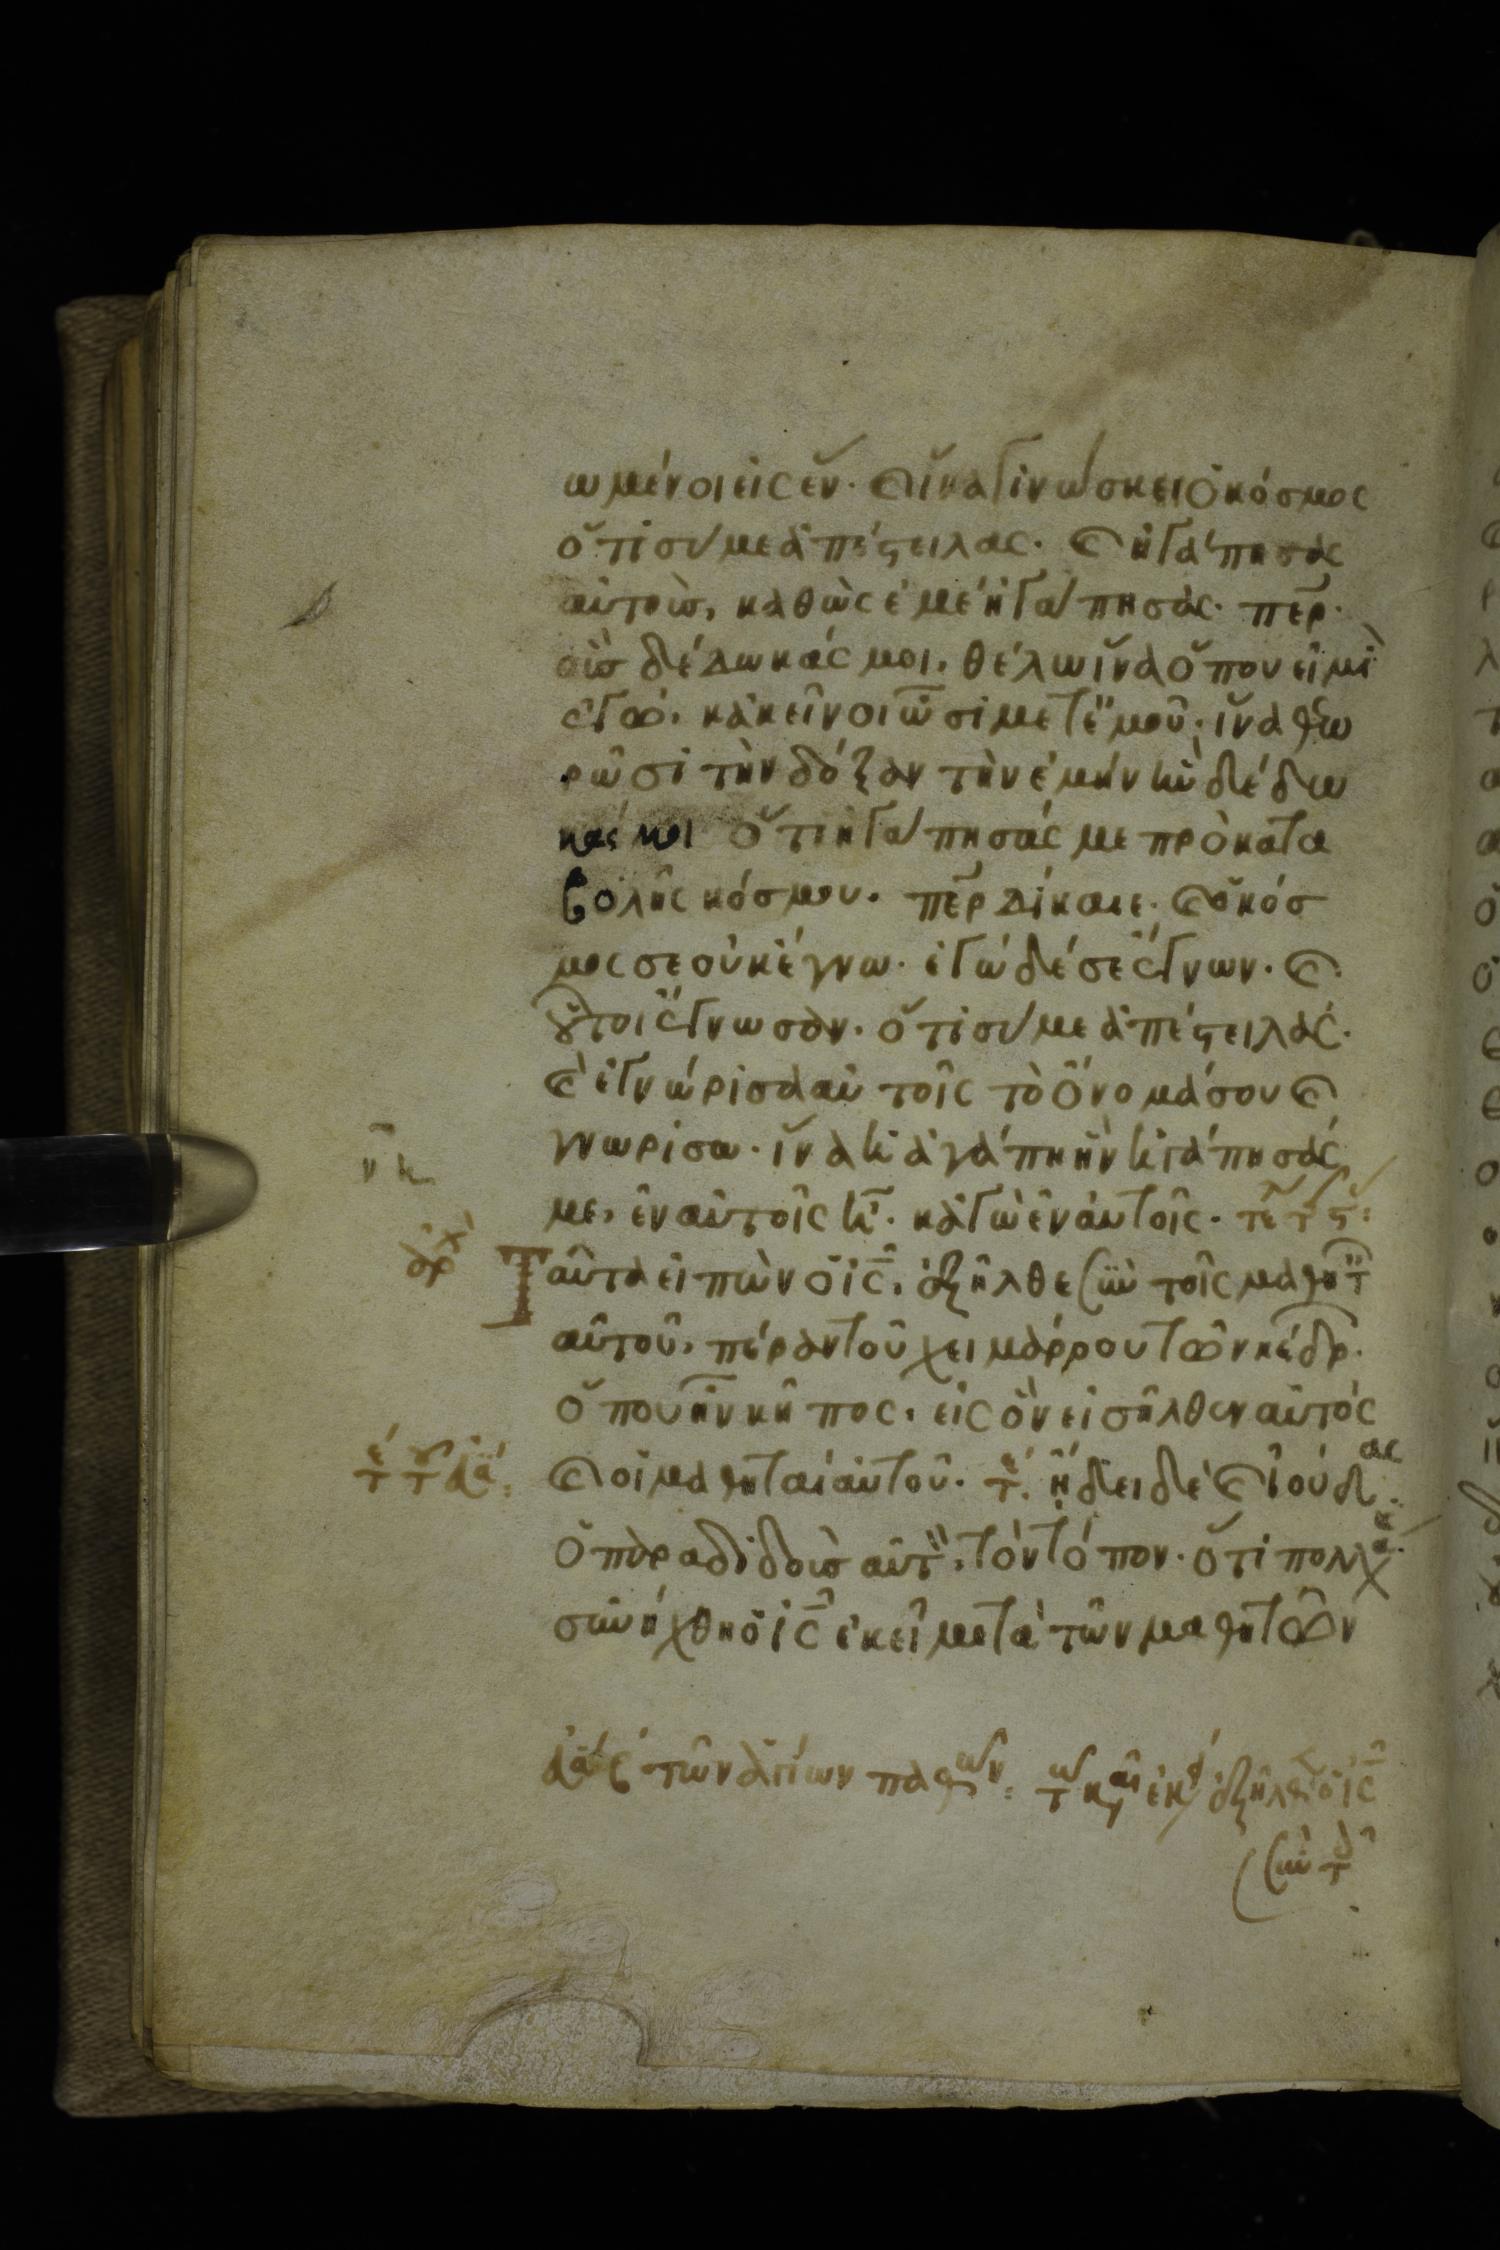 ωμένοι εἰς ἕν. καὶ ἵνα γινώσκει ὁ κόσμος
ὅτι σύ με ἀπέστειλας. καὶ ἠγάπησας
αὐτοὺς, καθὼς ἐμὲ ἠγάπησας. περ.
οὓς δέδωκάς μοι, θέλω ἵνα ὅπου εἰμὶ
ἐγὼ, κἀκεῖνοι ὦσι μετ ἐμοῦ· ἵνα θεω
ρῶσι τὴν δόξαν τὴν ἐμὴν ἣν δέδω
κάς μοι ὅτι ἠγάπησάς με πρὸ κατα
βολῆς κόσμου. περ δίκαιε. καὶ ὁ κόσ
μος σε οὐκ ἔγνω. ἐγὼ δέ σε ἔγνων. καὶ
οὗτοι ἔγνωσαν. ὅτι σύ με ἀπέστειλας.
καὶ ἐγνώρισα αὐτοῖς τὸ ὄνομά σου καὶ
γνωρίσω. ἵνα ἡ ἀγάπη ἣν ἠγάπησάς
με, ἐν αὐτοῖς ᾖ. κἀγὼ ἐν αὐτοῖς.
αρχ Ταῦτα εἰπὼν ὁ ις, ἐξῆλθε σὺν τοῖς μαθητ
αὐτοῦ, πέραν τοῦ χειμάρρου τῶν κέδρ.
ὅπου ἦν κῆπος, εἰς ὃν εἰσῆλθεν αὐτὸς
καὶ οἱ μαθηταὶ αὐτοῦ. ᾔδει δὲ καὶ ἰούδας
ὁ παραδιδοὺς αὐτ, τὸν τόπον. ὅτι πολλάκ
συνήχθη ὁ ις ἐκεῖ μετὰ τῶν μαθητῶν
τῶν ἁγίων παθῶν: τω καιρ εκ ἐξῆλθ ὁ ις
σὺν τ